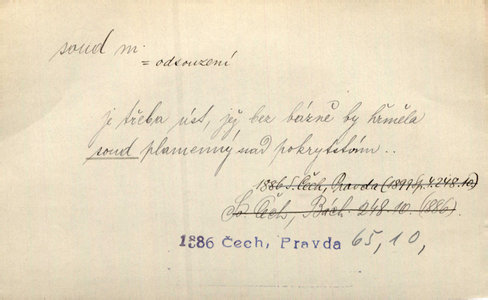 soud m.
= odsouzení
je třeba úst, jež bez bázně by hřměla
soud plamenný nad pokrytstvím..
1886 S. Čech, Pravda (1899) 4.248.10)
Sv. Čech, Bách. 248.10. (886).
1886 Čech, Pravda 65,10,